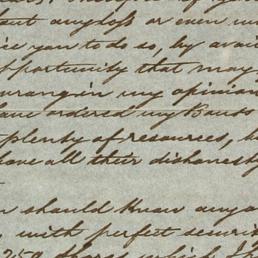 but any loss or even
you to do so, by
opportunity that may
wrong in my opinion
have ordered my Bonds
plenty of resources,
have all their dishonesty
should Know any
with perfect securi
250 shares which I